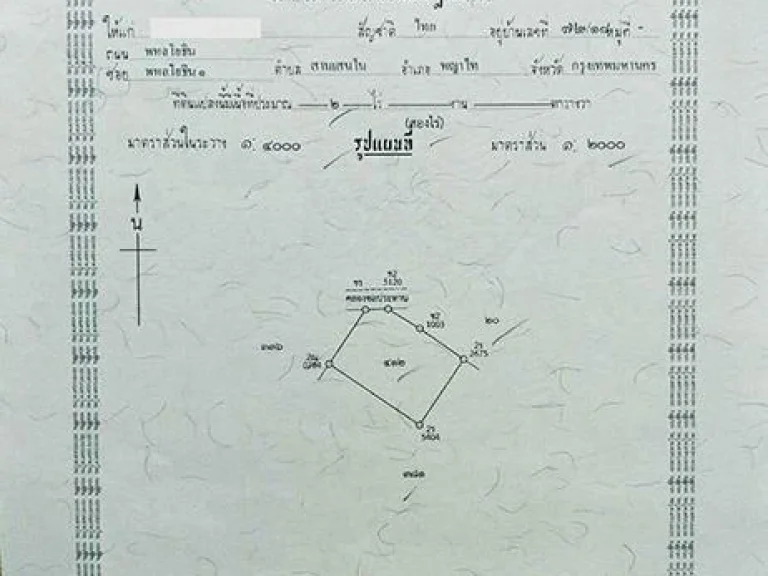 ให้แก่ สัญชาติ ไทย อยู่บ้านเลขที่ หมู่ที่ -
ถนน พหลโยธิน
ซอย พหลโยธิน ๑ ตำบล สามเสนใน อำเภอ พญาไท จังหวัด กรุงเทพมหานคร
ที่ดินแปลงนี้มีเนื้อที่ประมาณ ๒ ไร่ งาน ตารางวา
(สองไร่)
มาตราส่วนในระวาง ๑: ๔๐๐๐ รูปแผนที่ มาตราส่วน ๑: ๒๐๐๐
น
ข2
5120
คลองชลประทาน
ข2
1003
๒๐
2ร
2675
๔๑๒
2ร
5404